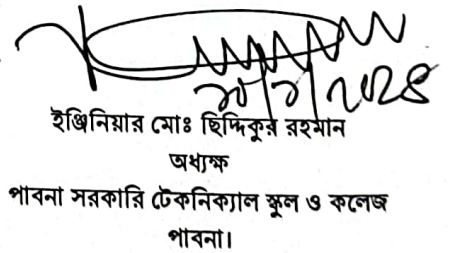 ইঞ্জিনিয়ার মোঃ ছিদ্দিকুর রহমান
অধ্যক্ষ
পাবনা সরকারি টেকনিক্যাল স্কুল ও কলেজ
পাবনা।